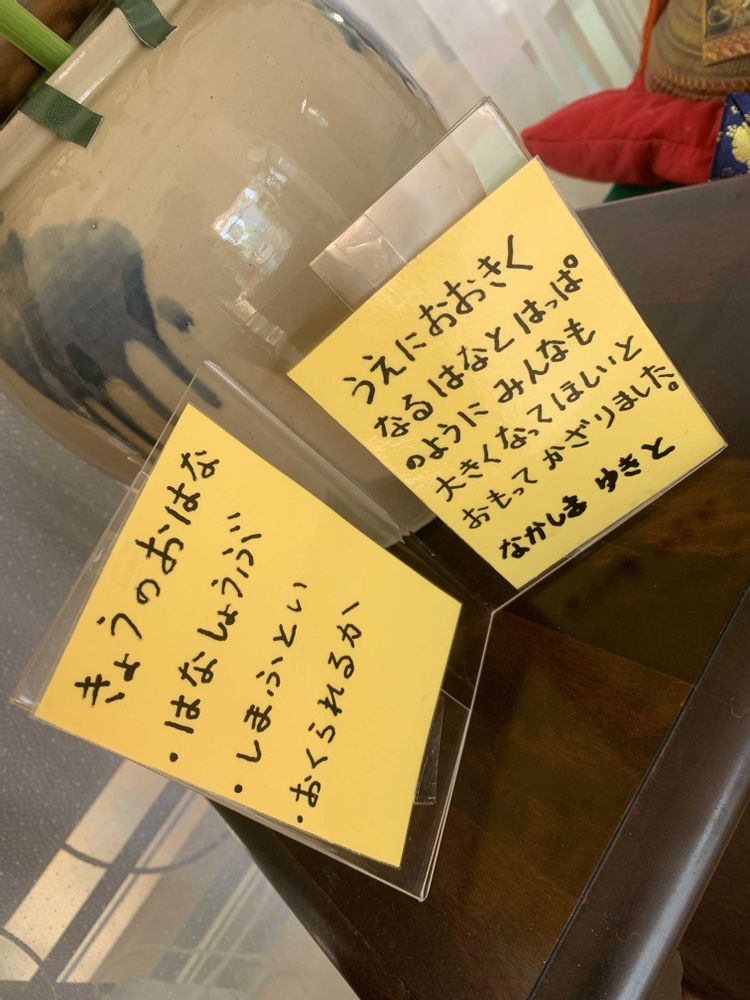 きょうのおはな
・はなしょうぶ
・しまふとい
・おくられるか
うえにおおきく
なるはなとはっぱ
のようにみんなも
大きくなってほしいと
おもってかざりました。
なかしま ゆきと